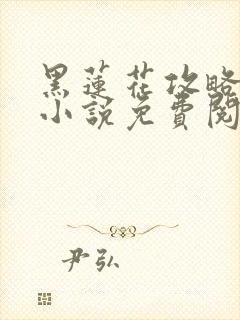 黑蓮花攻略
小說免費閱
尹弘